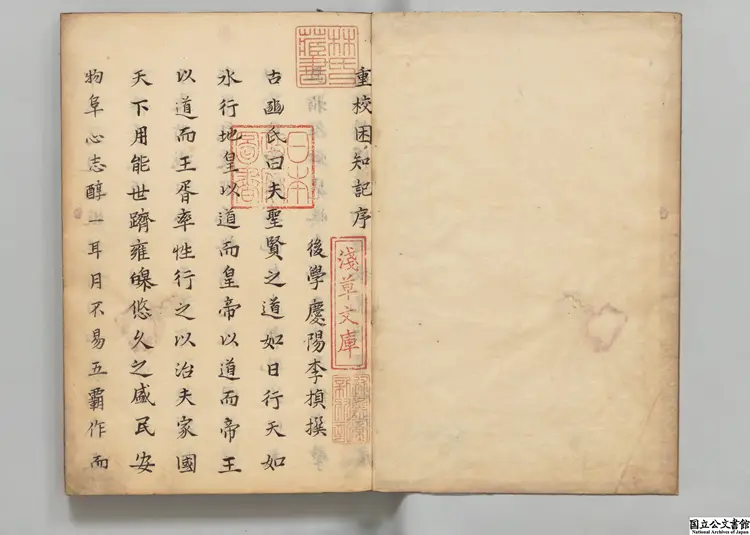 重校困知記序
後學慶陽李楨撰
古豳氏曰夫聖賢之道如日行天如
水行地皇以道而皇帝以道而帝王
以道而王胥率性行之以治夫家國
天下用能世躋雍皞悠久之盛民安
物阜心志醇一耳月不易五霸作而
林氏藏書
日本政府圖書
淺草文庫
国立公文書館
National Archives of Japan